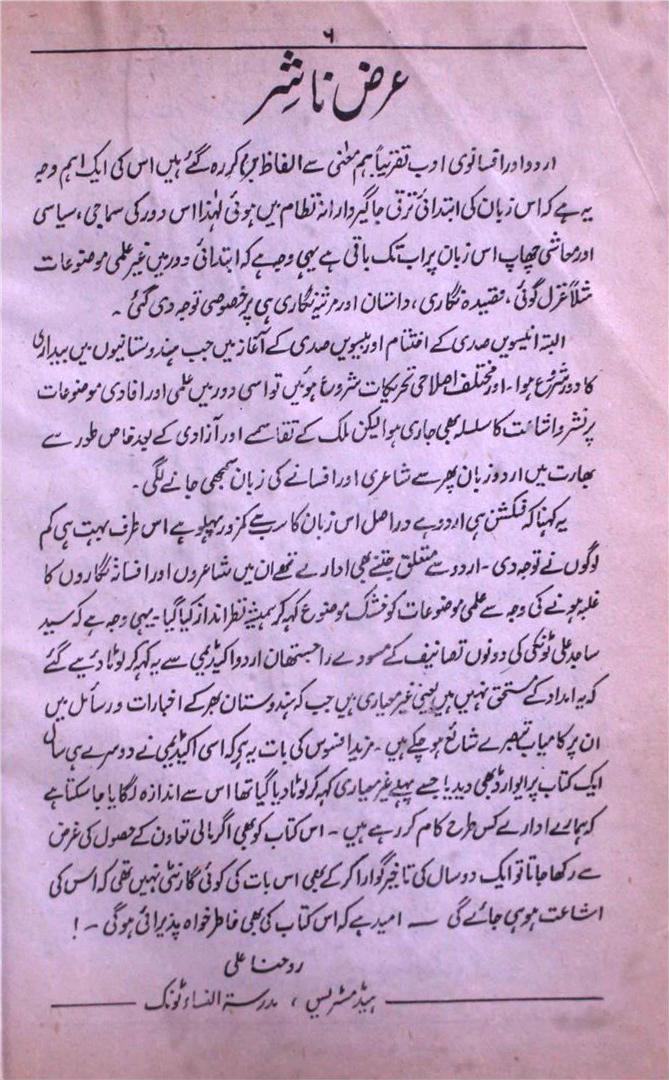 ۶
عرض ناشر
اردو اور افسانوی ادب تقریباً ہم معنٰی سے الفاظ ہوکر رہ گئے ہیں اس کی ایک اہم وجہ
یہ ہے کہ اس زبان کی ابتدائی ترقی جاگیردارانہ نظام میں ہوئی لہٰذا اس دور کی سماجی، سیاسی
اور معاشی چھاپ اس زبان پر اب تک باقی ہے یہی وجہ ہے کہ ابتدائی دور میں غیر علمی موضوعات
مثلاً غزل گوئی، قصیدہ نگاری، داستان اور مرثیہ نگاری ہی پر خصوصی توجہ دی گئی۔
البتہ انیسویں صدی کے اختتام اور بیسویں صدی کے آغاز میں جب ہندوستانیوں میں بیداری
کا دور شروع ہوا۔ اور مختلف اصلاحی تحریکات شروع ہوئیں تو اسی دور میں علمی اور افادی موضوعات
پر نشر و اشاعت کا سلسلہ بھی جاری ہوا لیکن ملک کے تقاسمے اور آزادی کے بعد خاص طور سے
بھارت میں اردو زبان پھر سے شاعری اور افسانے کی زبان سمجھی جانے لگی۔
یہ کہنا کہ فکشن ہی اردو ہے دراصل اس زبان کا سب سے کمزور پہلو ہے اس طرف بہت ہی کم
لوگوں نے توجہ دی۔ اردو سے متعلق جتنے بھی ادارے تھے ان میں شاعروں اور افسانہ نگاروں کا
غلبہ ہونے کی وجہ سے علمی موضوعات کو خشک موضوع کہہ کر ہمیشہ نظر انداز کیا گیا۔ یہی وجہ ہے کہ سید
ساجد علی ٹونکی کی دونوں تصانیف کے مسودے راجستھان اردو اکیڈیمی سے یہ کہہ کر لوٹا دیئے گئے
کہ یہ امداد کے مستحق نہیں ہیں یعنی غیر معیاری ہیں جب کہ ہندوستان بھر کے اخبارات و رسائل میں
ان پر کامیاب تبصرے شائع ہو چکے ہیں۔ مزید افسوس کی بات یہ ہے کہ اسی اکیڈیمی نے دوسرے ہی سال
ایک کتاب پر ایوارڈ بھی دیدیا جسے پہلے غیر معیاری کہہ کر لوٹا دیا گیا تھا اس سے اندازہ لگایا جا سکتا ہے
کہ ہمارے ادارے کس طرح کام کر رہے ہیں۔ اس کتاب کو بھی اگر مالی تعاون کے حصول کی غرض
سے رکھا جاتا تو ایک دو سال کی تاخیر گوارا کر کے بھی اس بات کی کوئی گارنٹی نہیں تھی کہ اس کی
اشاعت ہو ہی جائے گی — امید ہے کہ اس کتاب کی بھی خاطر خواہ پذیرائی ہوگی۔!
روحنا علی
ہیڈ مسٹریس، مدرسۃ النساء ٹونک